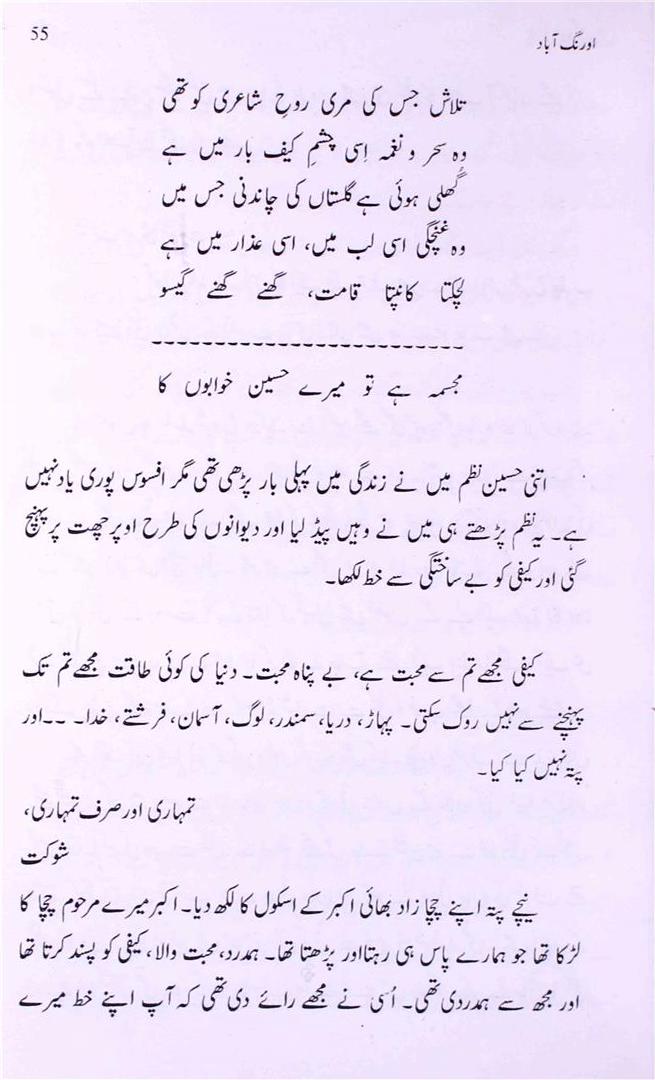 55
اورنگ آباد
تلاش جس کی مری روحِ شاعری کو تھی
وہ سحر و نغمہ اِسی چشمِ کیف بار میں ہے
گُھلی ہوئی ہے گلستاں کی چاندنی جس میں
وہ غنچگی اسی لب میں، اسی عذار میں ہے
لچکتا کانپتا قامت، گھنے گھنے گیسو
--------------------------
مجسمہ ہے تو میرے حسین خوابوں کا
اتنی حسین نظم میں نے زندگی میں پہلی بار پڑھی تھی مگر افسوس پوری یاد نہیں
ہے۔ یہ نظم پڑھتے ہی میں نے وہیں پیڈ لیا اور دیوانوں کی طرح اوپر چھت پر پہنچ
گئی اور کیفی کو بے ساختگی سے خط لکھا۔
کیفی مجھے تم سے محبت ہے، بے پناہ محبت۔ دنیا کی کوئی طاقت مجھے تم تک
پہنچنے سے نہیں روک سکتی۔ پہاڑ، دریا، سمندر، لوگ، آسمان، فرشتے، خدا۔۔۔۔اور
پتہ نہیں کیا کیا۔
تمہاری اور صرف تمہاری،
شوکت
نیچے پتہ اپنے چچا زاد بھائی اکبر کے اسکول کا لکھ دیا۔ اکبر میرے مرحوم چچا کا
لڑکا تھا جو ہمارے پاس ہی رہتا اور پڑھتا تھا۔ ہمدرد، محبت والا، کیفی کو پسند کرتا تھا
اور مجھ سے ہمدردی تھی۔ اُسی نے مجھے رائے دی تھی کہ آپ اپنے خط میرے